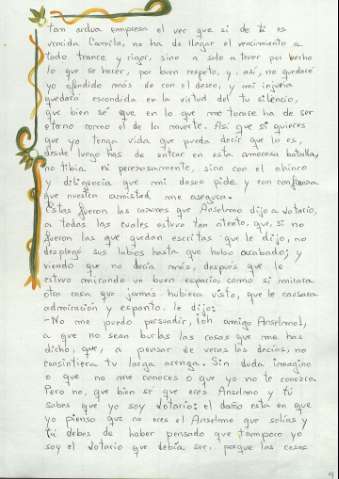 tan ardua empresa el ver que si de ti es
vencida Camila, no ha de llegar el vencimiento a
todo trance y rigor, sino a solo a tener por hecho
lo que se ha de hacer, por buen respeto, y así, no quedaré
yo ofendido más de con el deseo, y mi injuria
quedará escondida en la virtud de tu silencio,
que bien sé que en lo que me tocare ha de ser
eterno como el de la muerte. Así que si quieres
que yo tenga vida que pueda decir que lo es,
desde luego has de entrar en esta amorosa batalla,
no tibia ni perezosamente, sino con el ahinco
y diligencia que mi deseo pide y con confianza
que nuestra amistad me asegura.
Estas fueron las razones que Anselmo dijo a Lotario,
a todas las cuales estuvo tan atento, que, si no
fueron las que quedan escritas que le dijo, no
desplegó sus labios hasta que hubo acabado; y
viendo que no decía más, después que le
estuvo mirando un buen espacio, como si mirara
otra cosa que jamás hubiera visto, que le causara
admiración y espanto, le dijo:
-No me puedo persuadir, ¡oh amigo Anselmo!,
a que no sean burlas las cosas que me has
dicho, que, a pensar de veras las decías, no
consintiera tu larga arenga. Sin duda imagino
o que no me conoces o que yo no te conozco.
Pero no, que bien sé que eres Anselmo y tú
sabes que yo soy Lotario; el daño está en que
yo pienso que no eres el Anselmo que solías y
tú debes de haber pensado que tampoco yo
soy el Lotario que debía ser, porque las cosas